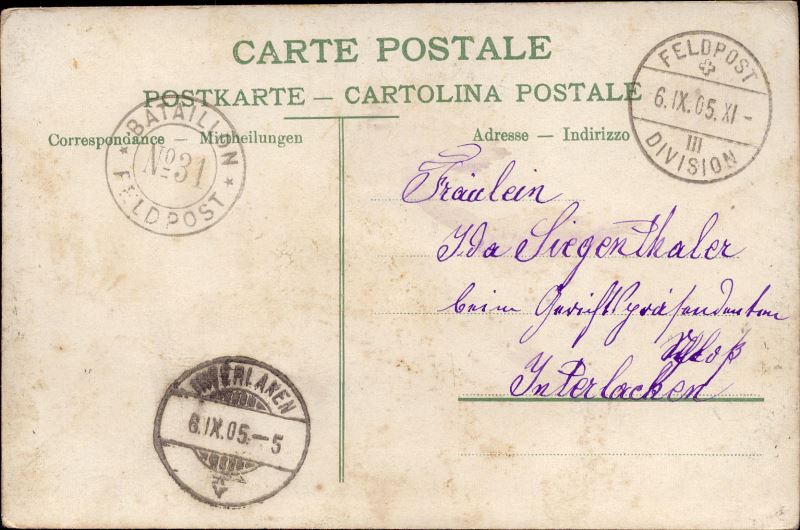 CARTE POSTALE
POSTKARTE — CARTOLINA POSTALE
Correspondance — Mittheilungen
Adresse — Indirizzo
BATAILLON
No 31
FELDPOST
FELDPOST
6.IX.05.XI-
III
DIVISION
Fräulein
Ida Siegenthaler
beim Gerichtspräsendenten
Schloß
Interlacken
INTERLAKEN
6.IX.05.-5